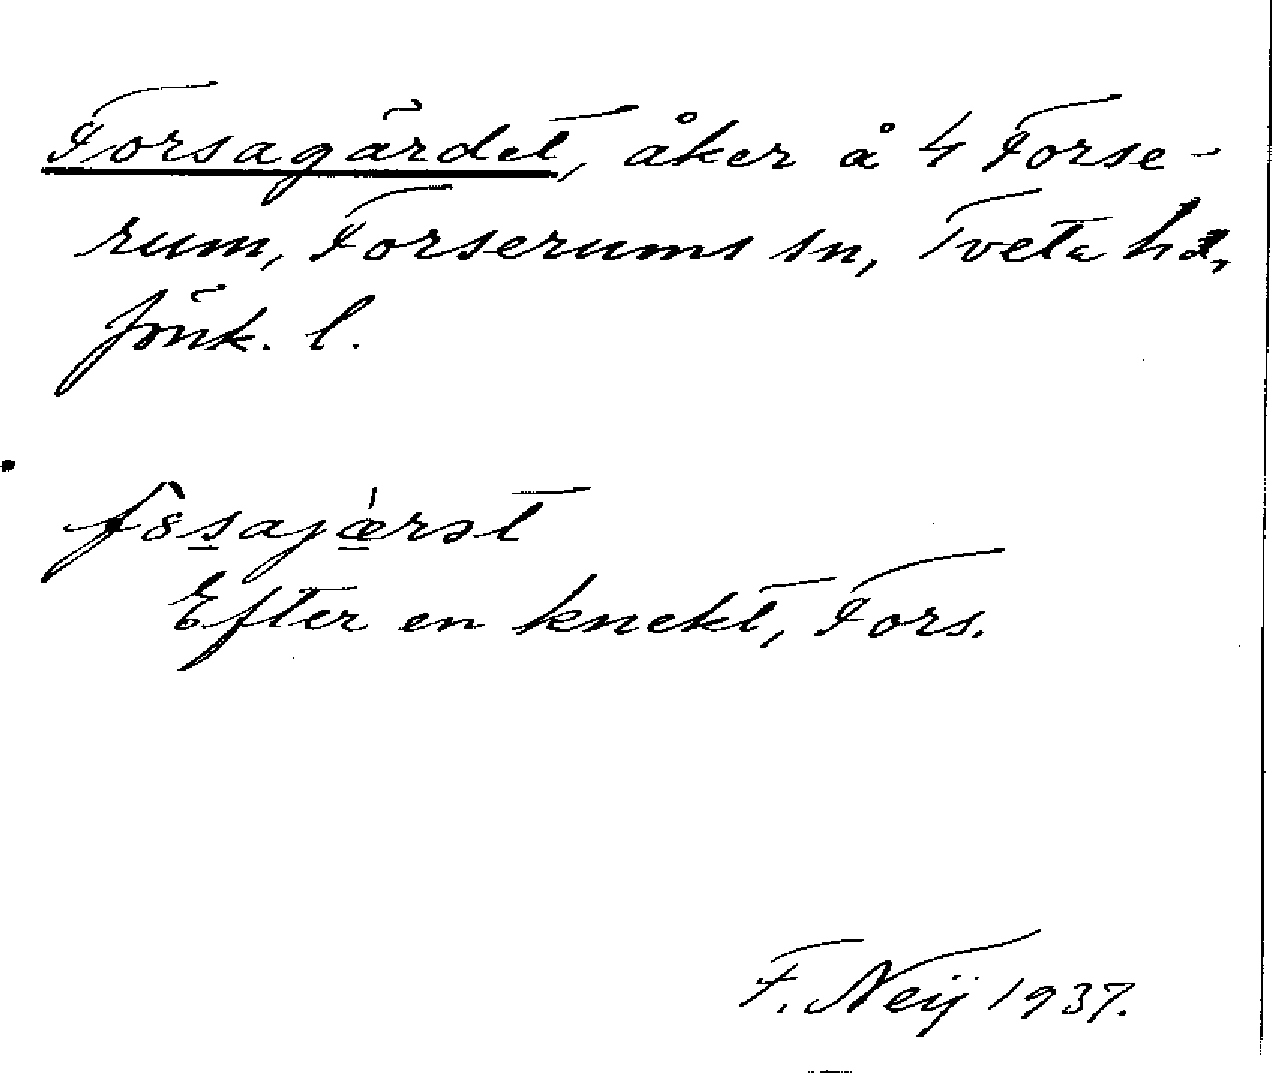 Forsagärdet, åker å 4 Forse-
rum, Forserums sn, Tveta hd,
Jönk. l.
Efter en knekt, Fors.
F. Neij 1937.